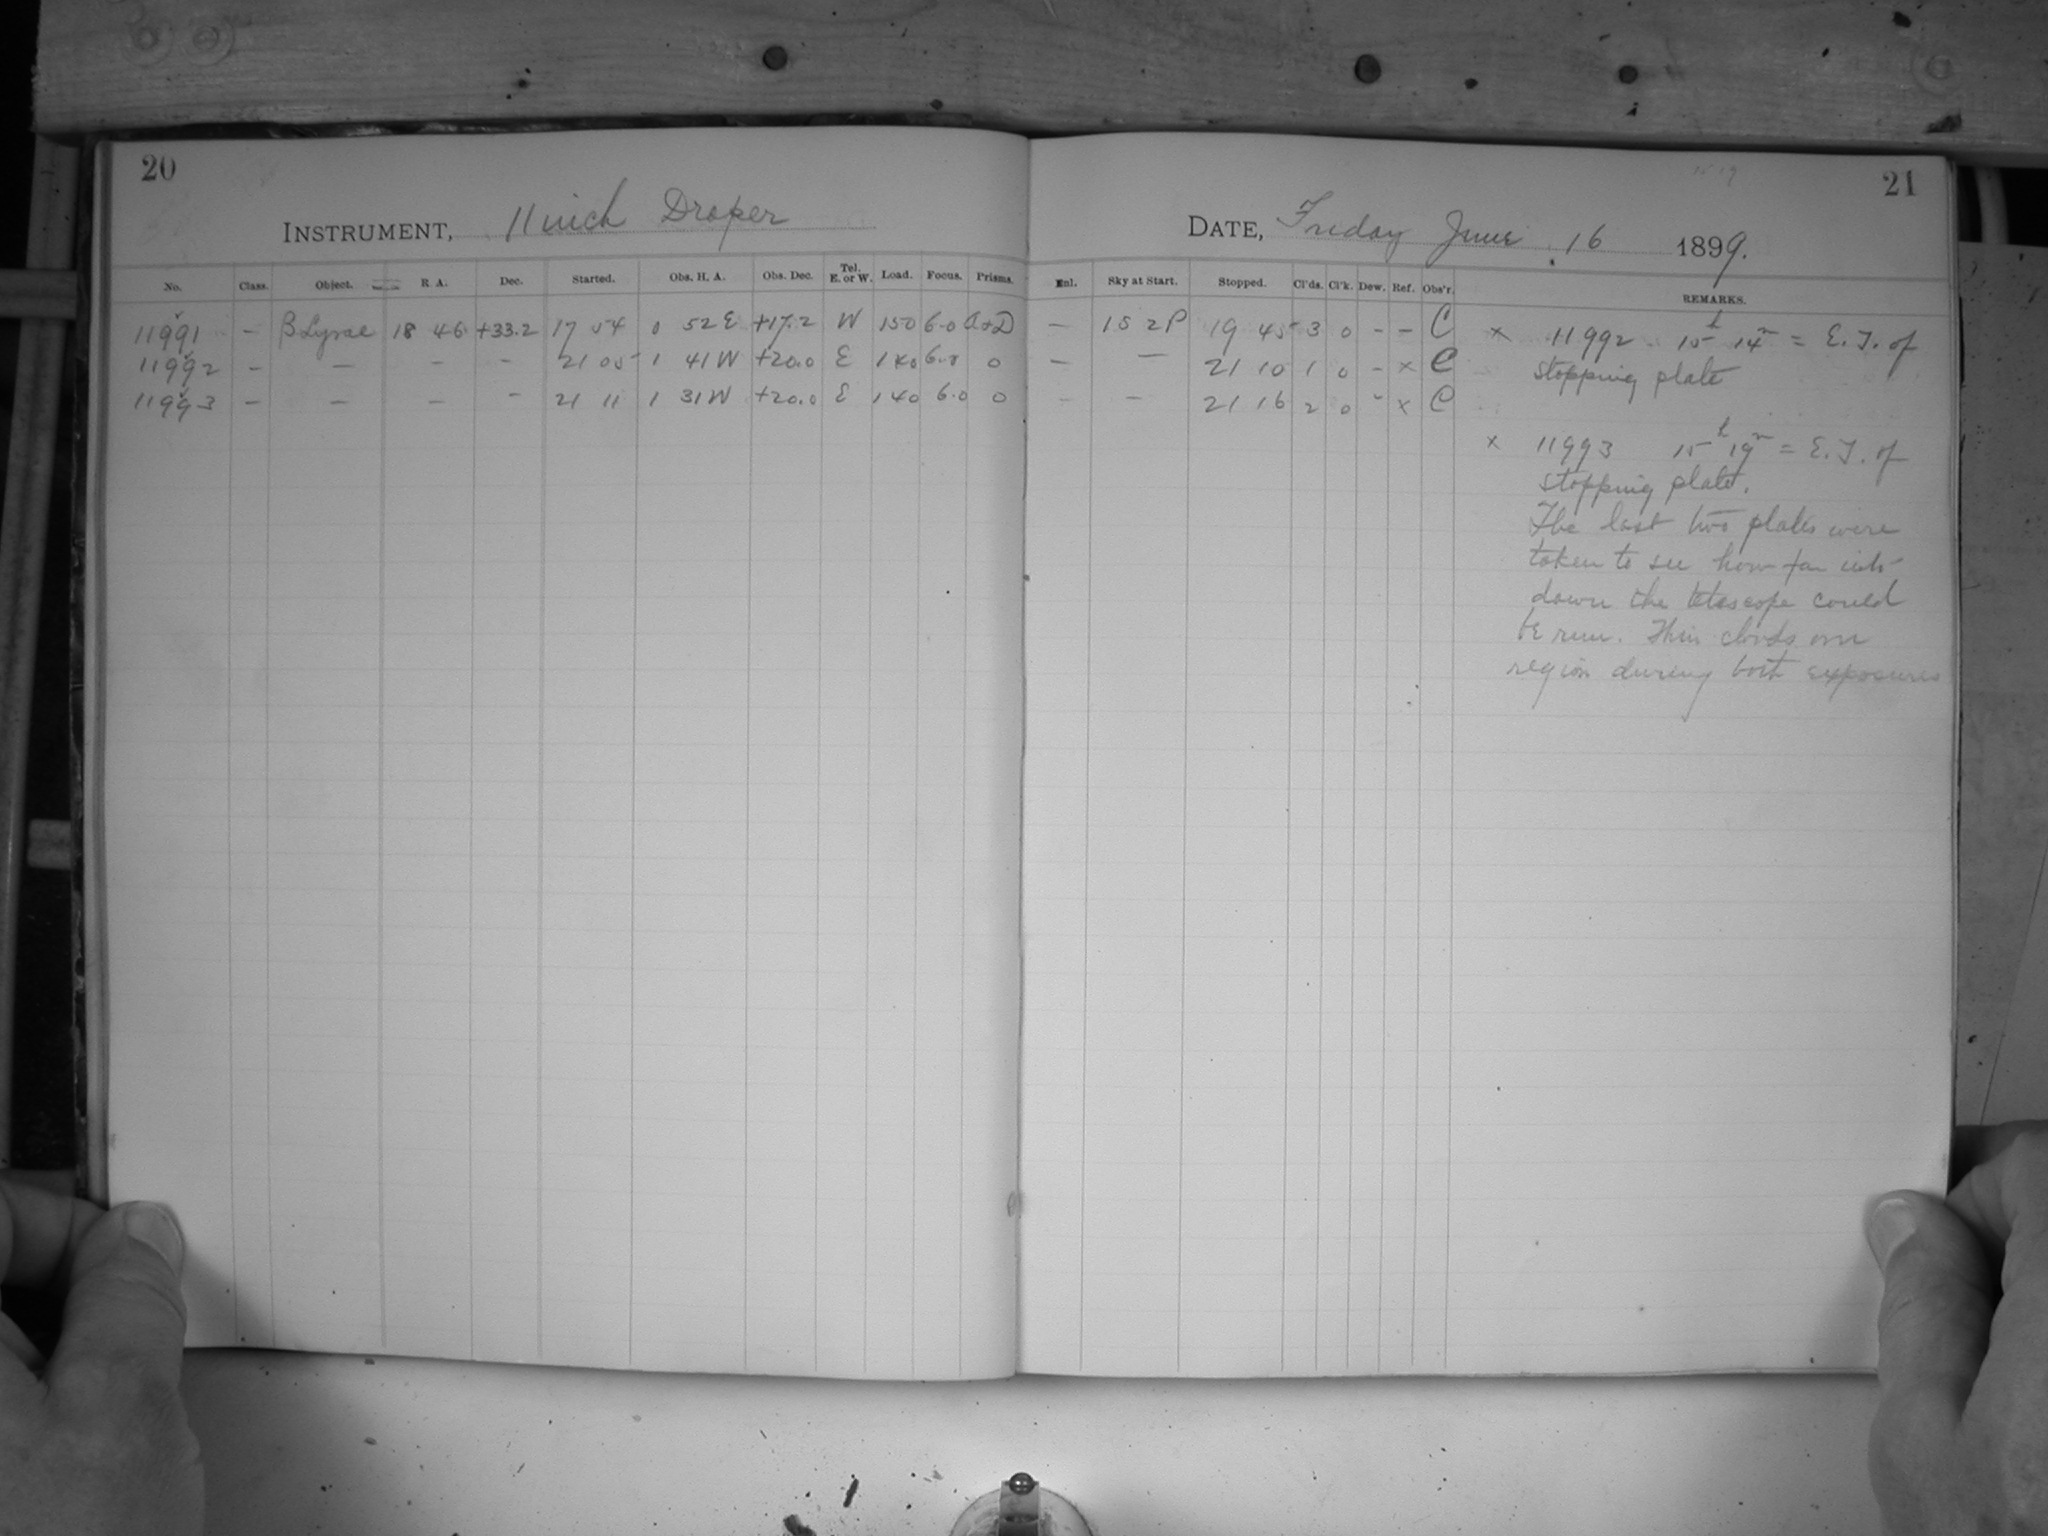 20
INSTRUMENT, 11 inch Draper
No. Class. Object. R. A. Dec. Started. Obs. H. A. Obs. Dec. Tel. E. or W. Load. Focus. Prisms.
11991 – β Lyrae 18 46 +33.2 17 54 0 52 E +17.2 W 150 6.0 A+D
11992 – – – – 21 05 1 41 W +20.0 E 140 6.0 0
11993 – – – – 21 11 1 31 W +20.0 E 140 6.0 0
21
DATE, Friday June 16 1899.
Enl. Sky at Start. Stopped. Cl'ds. Cl'k. Dew. Ref. Obs'r. REMARKS.
– 15 2P 19 45 3 0 – – C
– – 21 10 1 0 – x C
– – 21 16 2 0 – x C
x 11992 15h 14m = E. T. of
stopping plate
x 11993 15h 19m = E. T. of
stopping plate.
The last two plates were
taken to see how far
down the telescope could
be run. Thin clouds over
region during both exposures